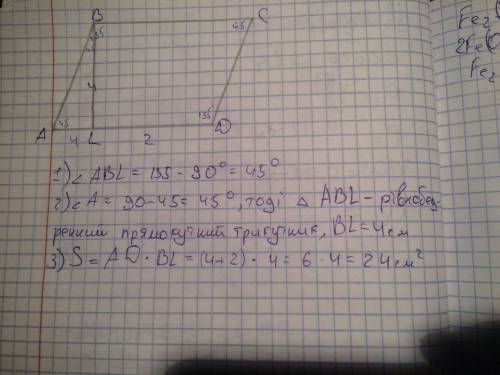 B
C
45
45
135
4
A
45
4
L
2
D
Fe₂
2Fe(
Fe₂
1) < ABL = 135 - 90° = 45°
2) < A = 90 - 45 = 45°, тоді △ ABL - рівнобед-
ренний прямокутний трикутник, BL = 4 см
3) S = AD · BL = (4+2) · 4 = 6 · 4 = 24 см²